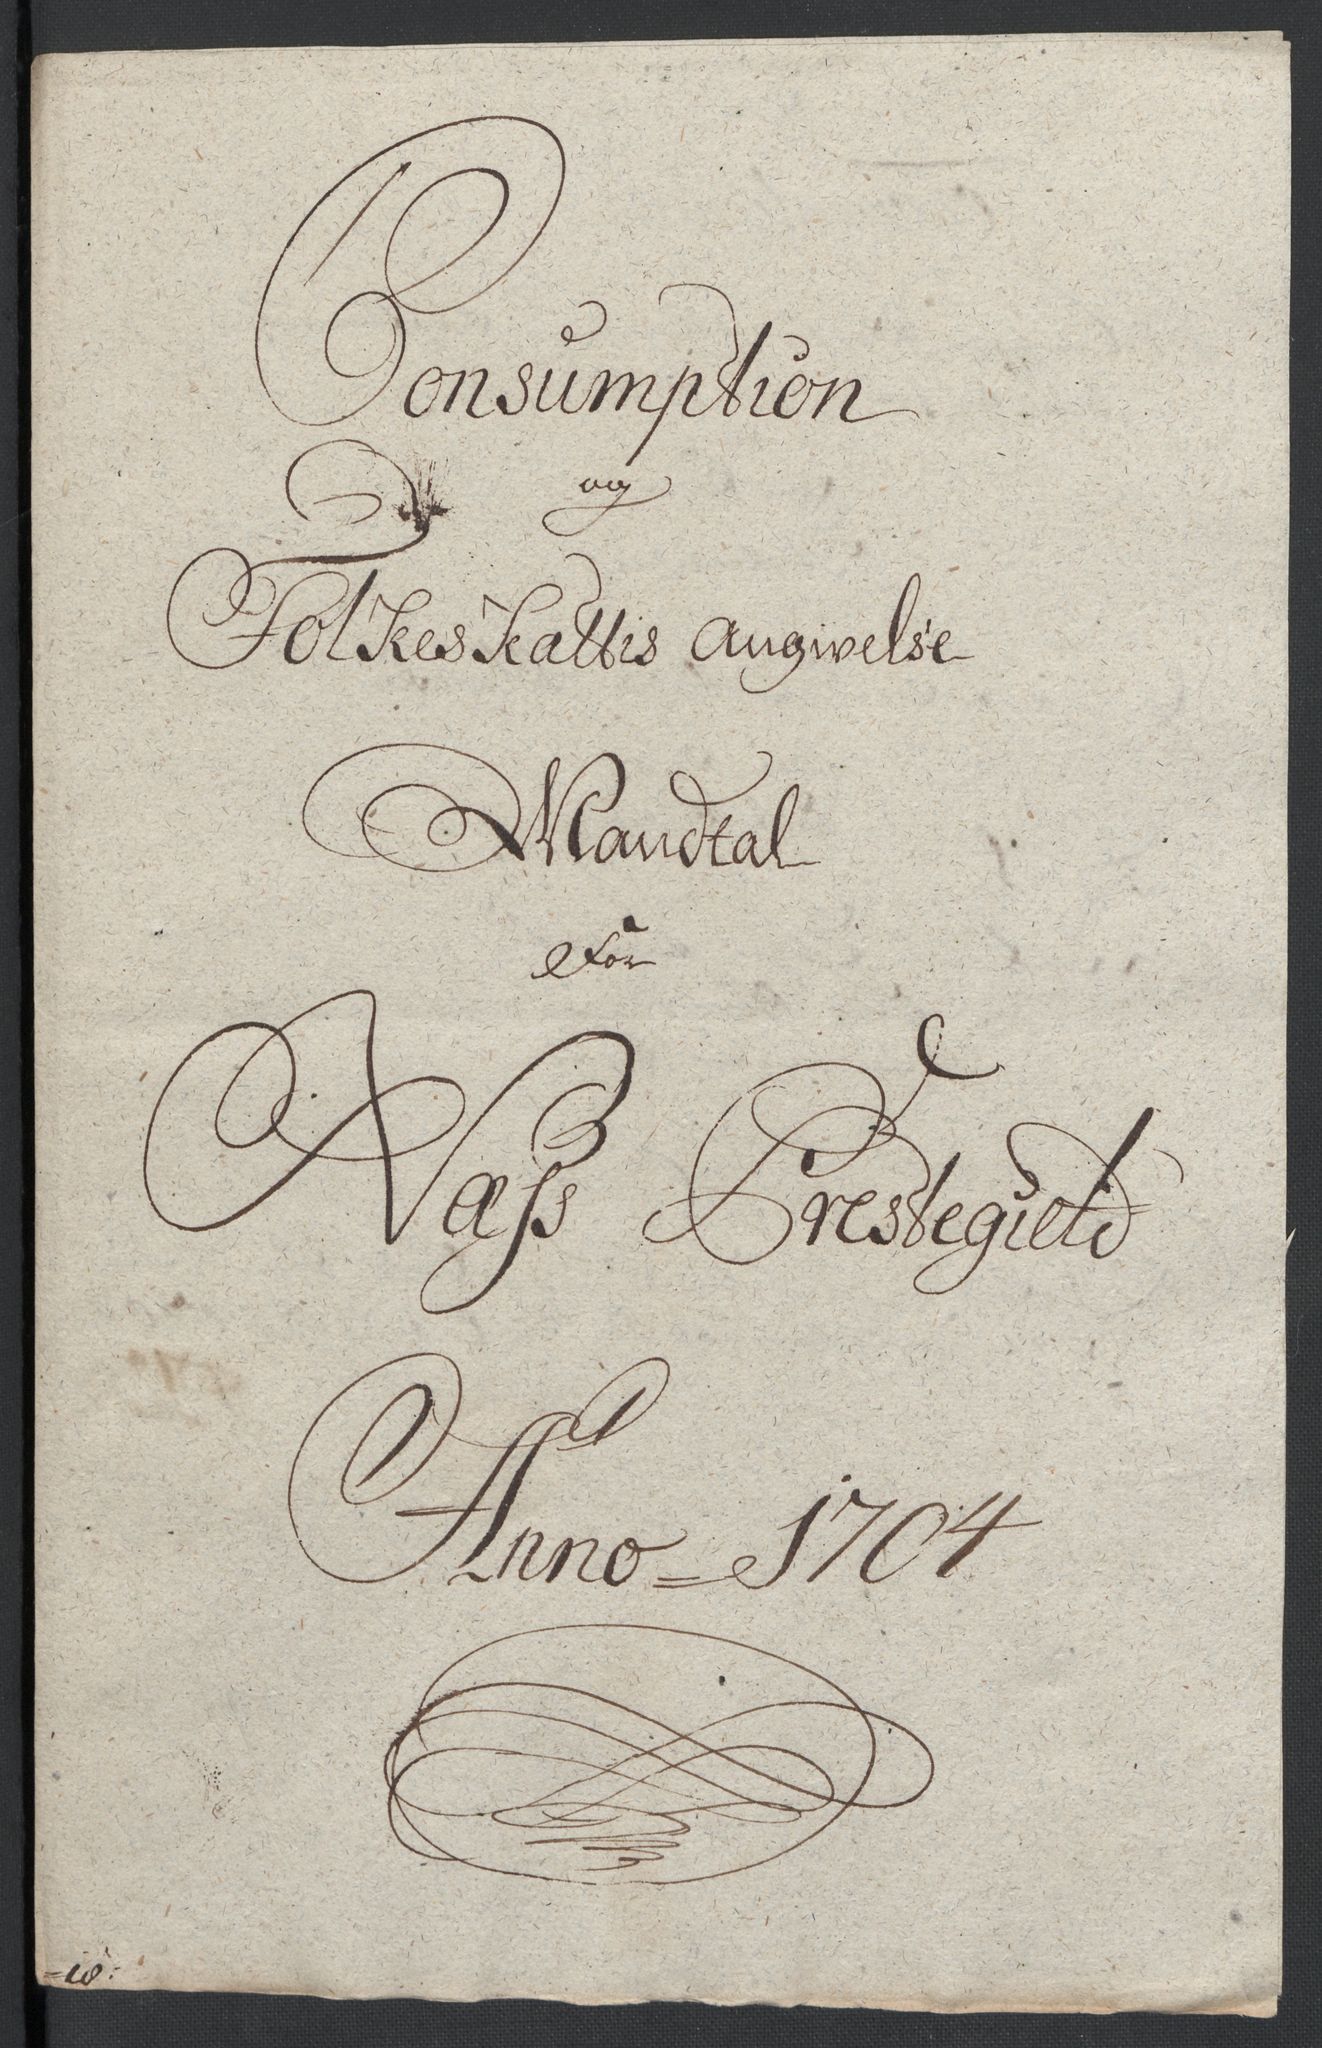 Consumption
og
Folkeskattis Angivelse
Mandtal
For
Næss Prestegield
Anno = 1704
=10: